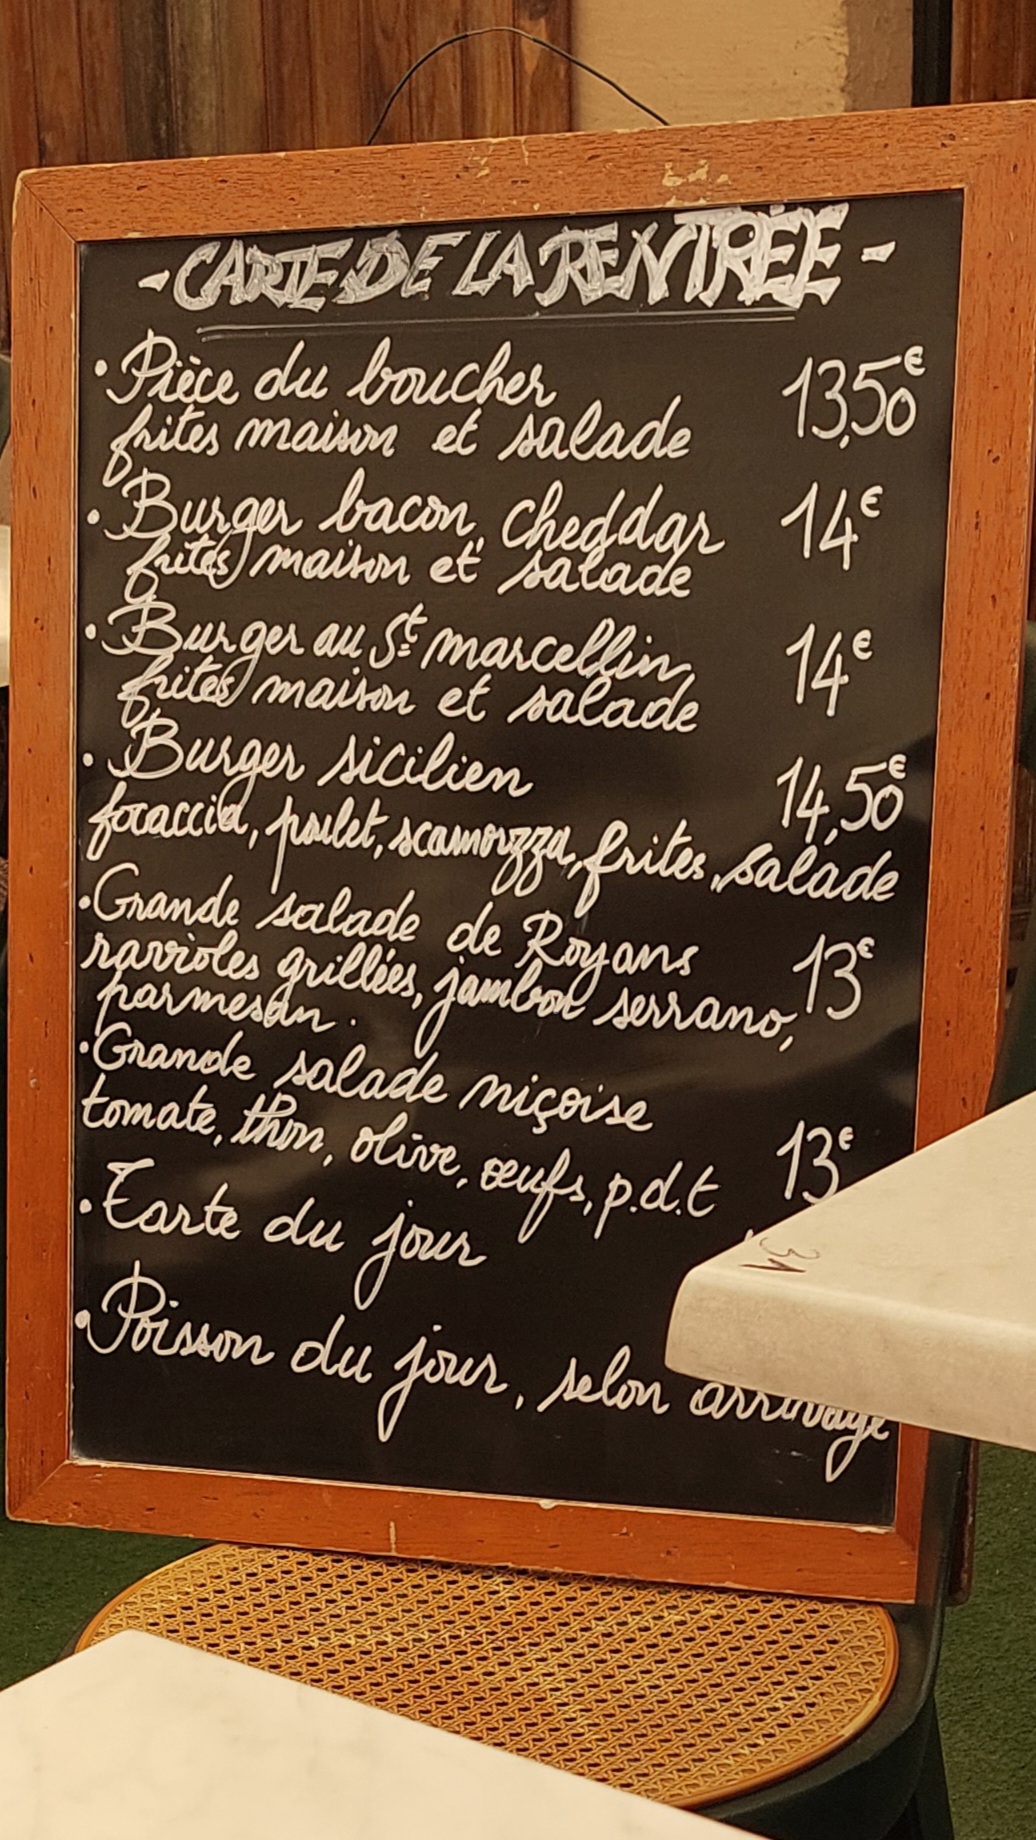 - CARTE DE LA RENTRÉE -
• Pièce du boucher 13,50€
frites maison et salade
• Burger bacon, cheddar 14€
frites maison et salade
• Burger au St marcellin 14€
frites maison et salade
• Burger sicilien 14,50€
focaccia, poulet, scamorzza, frites, salade
• Grande salade de Royans 13€
ravioles grillées, jambon serrano,
parmesan.
• Grande salade niçoise
tomate, thon, olive, œufs, p.d.t 13€
• Tarte du jour
• Poisson du jour, selon arrivage